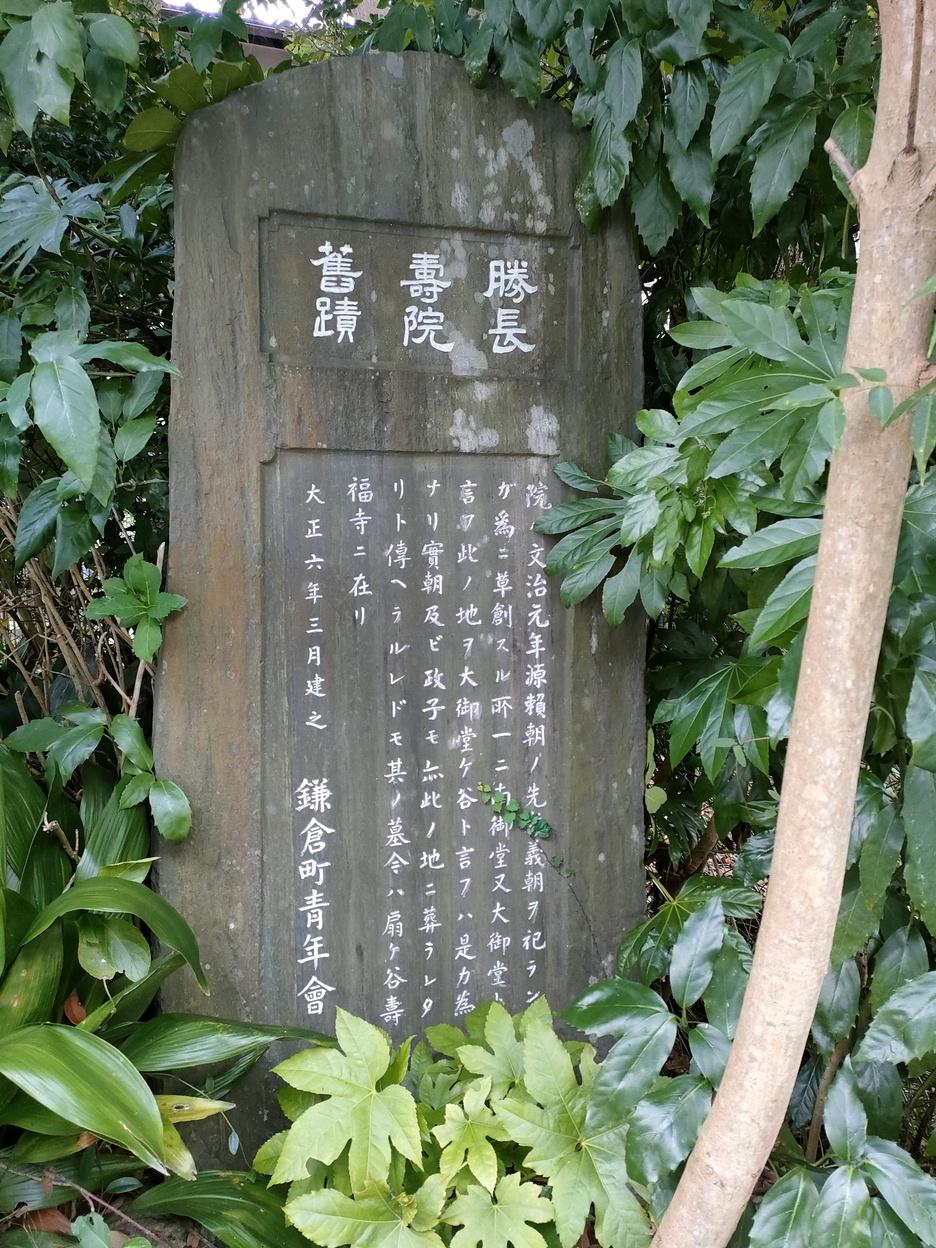 勝長
壽院
舊蹟
院ハ文治元年源賴朝ノ先義朝ヲ祀ラン
ガ爲ニ草創スル所一ニ南御堂又大御堂ト
言フ此ノ地ヲ大御堂ケ谷ト言フハ是ガ為
ナリ實朝及ビ政子モ亦此ノ地ニ葬ラレタ
リト傳ヘラルレドモ其ノ墓今ハ扇ケ谷壽
福寺ニ在リ
大正六年三月建之 鎌倉町青年會